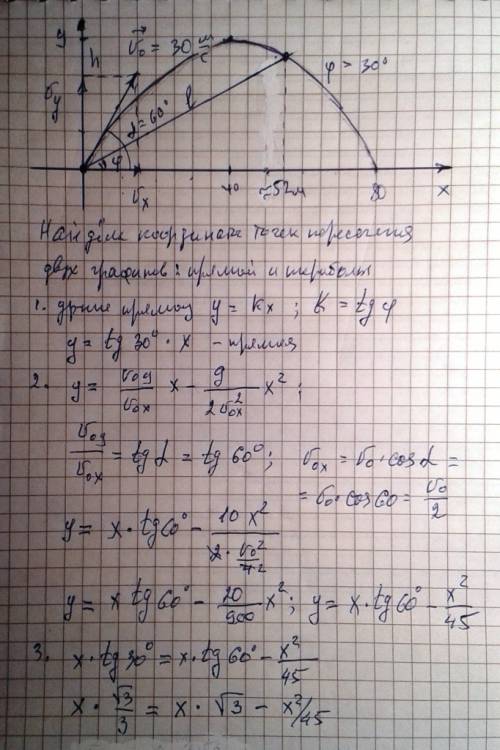 y
h
v⃗₀ = 30 м/с
φ = 30°
v_y
α = 60°
l
φ
v_x
40
≈52м
80
x
Найдём координаты точек пересечения
двух графиков: прямой и параболы
1. y = kx ; k = tg φ
y = tg 30° · x – прямая
2. y = v₀y/v₀x x − g/(2v₀x²) x² ;
v₀y/v₀x = tg α = tg 60° ; v₀x = v₀ · cos α =
= v₀ · cos 60 = v₀/2
y = x · tg 60° − 10 x²/(2 · v₀²/4)
y = x tg 60° − 20/900 x² ; y = x · tg 60° − x²/45
3. x · tg 30° = x · tg 60° − x²/45
x · √3/3 = x · √3 − x²/45